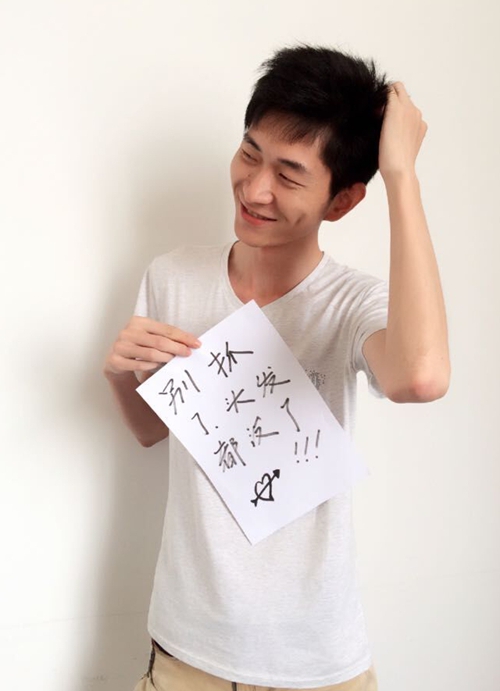 别抓
了.头发
都没了
!!!